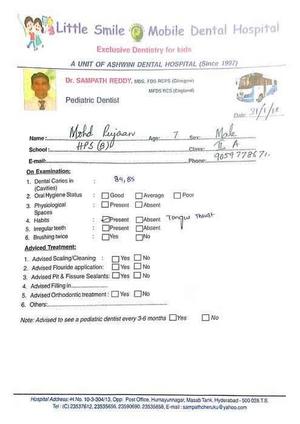 Little Smile Mobile Dental Hospital
Exclusive Dentistry for kids
A UNIT OF ASHWINI DENTAL HOSPITAL (Since 1997)
Dr. SAMPATH REDDY, MDS, FDS RCPS (Glasgow)
MFDS RCS (England)
Pediatric Dentist
Date:
Name: Mohd Age: 7 Sex: Male
School: HPS (B) Class: II A
E-mail: Phone:
On Examination:
1. Dental Caries in 84, 85
(Cavities)
2. Oral Hygiene Status : Good Average Poor
3. Physiological Present Absent
Spaces
4. Habits Present Absent Tongue Thrust
5. Irregular teeth Present Absent
6. Brushing twice Yes No
Adviced Treatment:
1. Advised Scaling/Cleaning : Yes No
2. Advised Flouride application: Yes No
3. Advised Pit & Fissure Sealants: Yes No
4. Advised Filling in
5. Advised Orthodontic treatment : Yes No
6. Others:
Note: Advised to see a pediatric dentist every 3-6 months Yes No
Hospital Address: H.No. 10-3-304/13, Opp: Post Office, Humayunnagar, Masab Tank, Hyderabad - 500 028 T.S.
Tel : (C) 23537612, 23535656, 23590690, 23535858, E-mail : sampathcheruku@yahoo.com